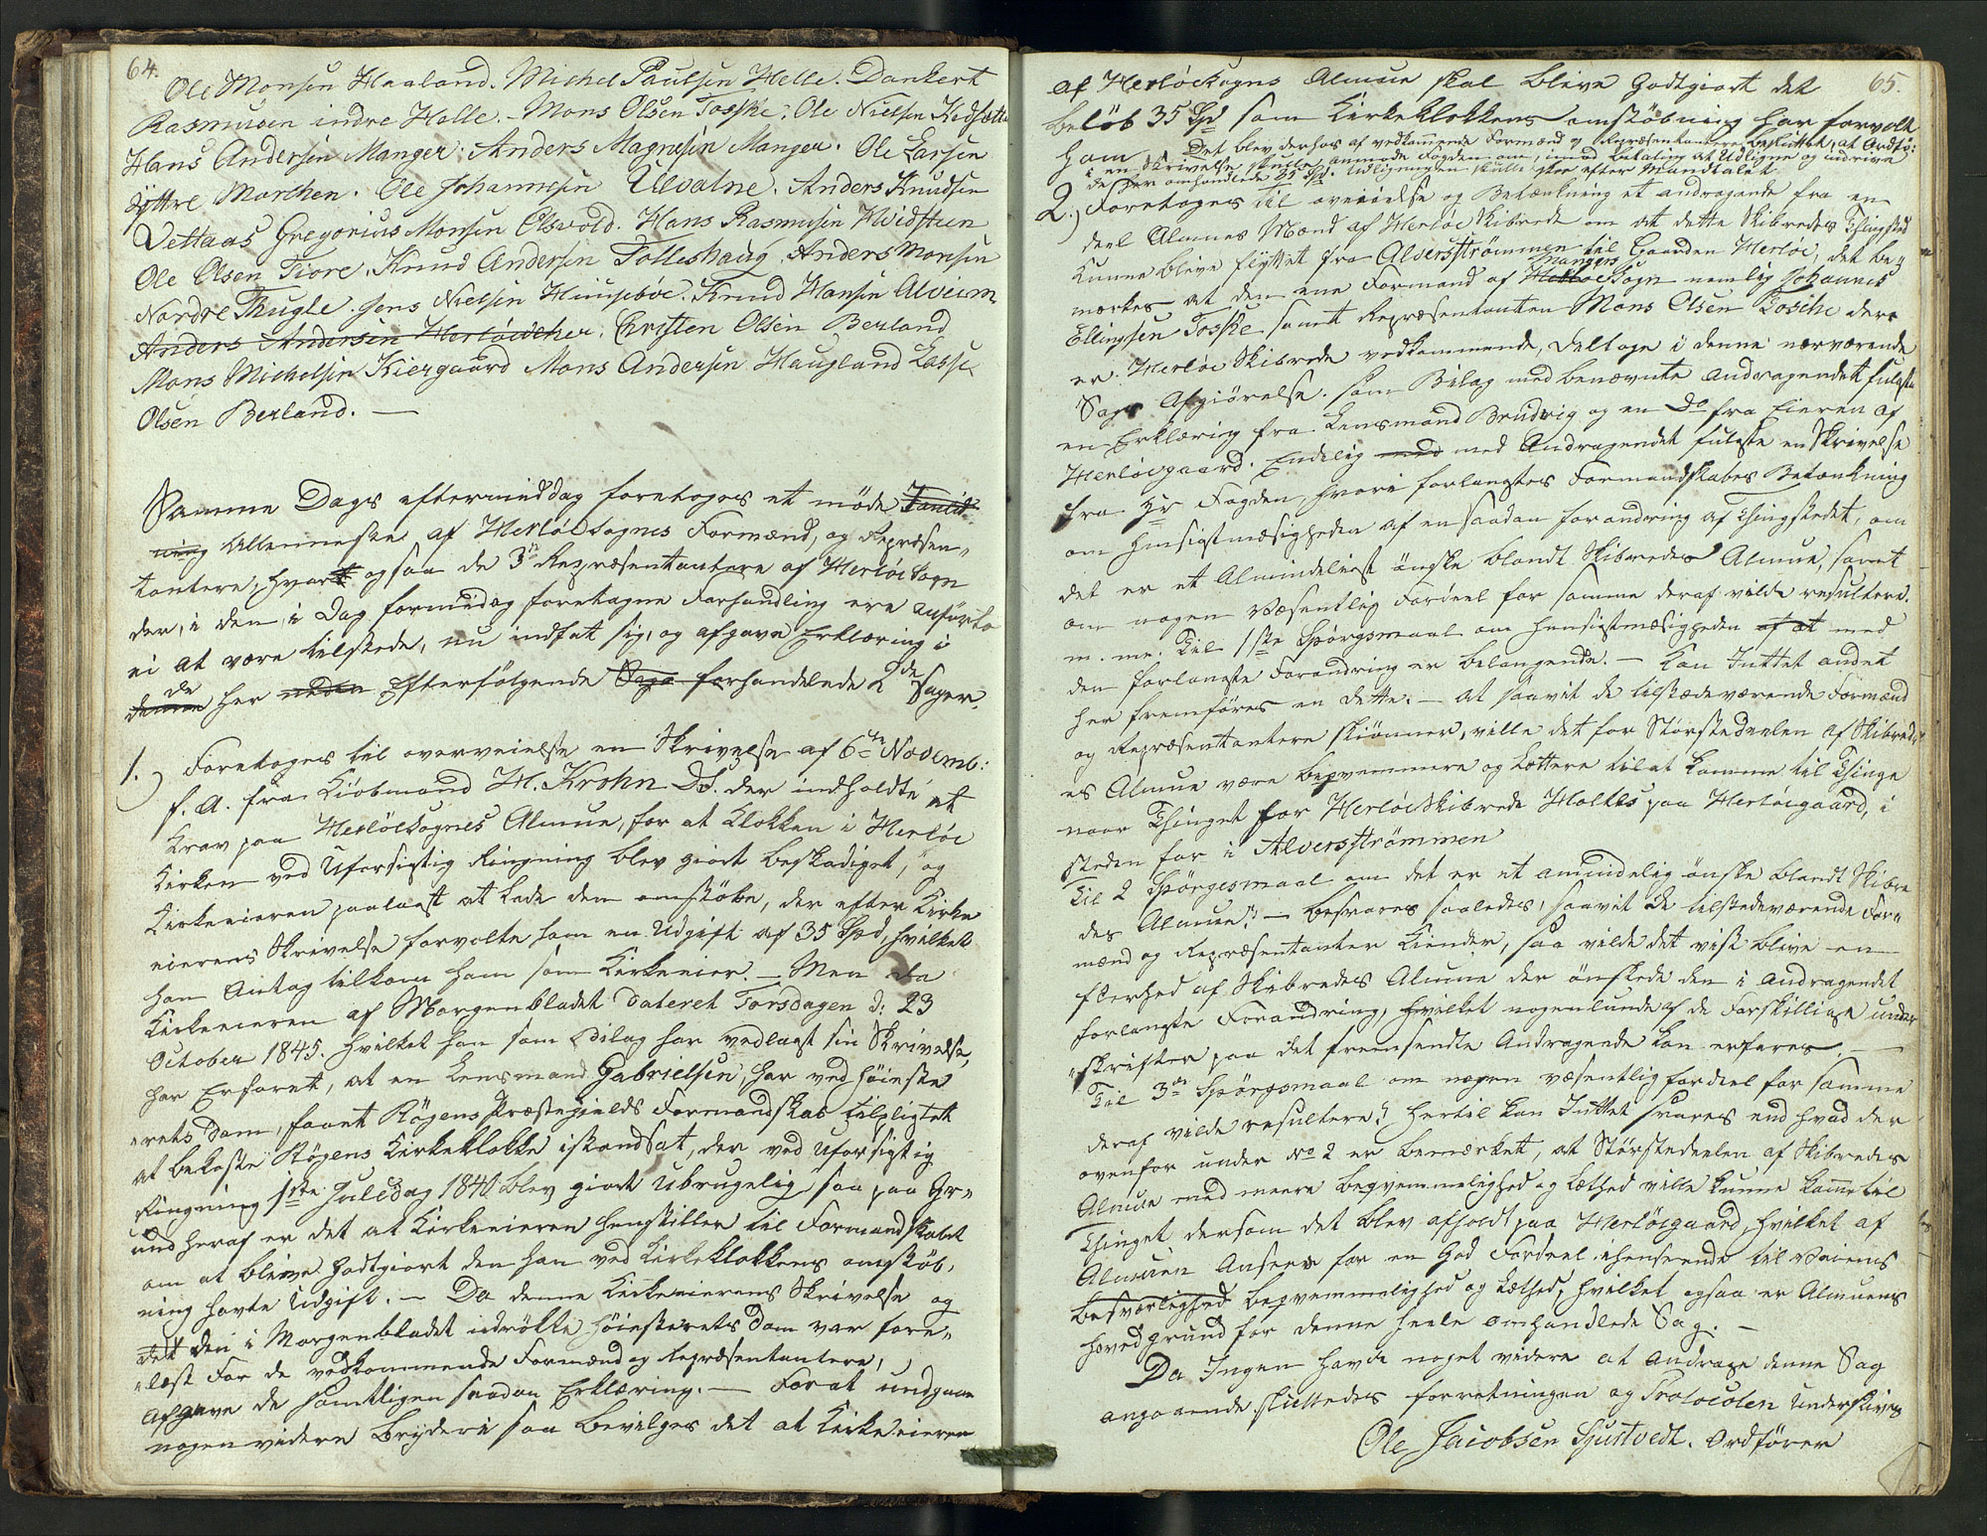 64.
Ole Monsen Haaland. Michel Paulsen Helle. Dankert
Rasmusen indre Helle. - Mons Olsen Toschе. Ole Nielsen Kidsætter
Hans Andersen Manger. Anders Magnesen Manger. Ole Larsen
Yttre Marchen. Ole Johannesen Ulvatne. Anders Knudsen
Vettaas Gregorius Monsen Olsvold. Hans Rasmusen Hvidsteen
Ole Olsen Fiore. Knud Andersen Tolleshaug. Anders Monsen
Nordre Thugle. Jens Nielsen Huusebøe. Knud Hansen Alveim
Anders Andersen Herløevcher. Christen Olsen Berland
Mons Michelsen Kiergaard Mons Andersen Haugland Lasse
Olsen Berland. —
Samme Dags eftermiddag foretoges et møde
allermeste af Herløe Sognes Formænd, og Repræsen-
tantere, hvor og saa de 3de Repræsentantere af Herløe Sogn
der, i den, i Dag formiddag foretagne Forhandling ere anførte
ei at være tilstede, nu indfat sig, og afgave Erklæring i
denne de her neden Efterfølgende Sega forhandlede 2de Sager.
1.) Foretoges til overveielse en Skrivelse af 6te Novemb:
f. A. fra Kiøbmand H. Krohn DS. der indholdte et
Krav paa Herløesognes Almue, for at Klokken i Herløe
Kirken ved Uforsigtig Ringning blev giort beskadiget, og
Kirkeeieren paalagt at lade den omstøbe, der efter Kirke
eierens Skrivelse forvolte ham en Udgift af 35 Spd, hvilket
han Antog tilkom ham som Kirkeeier. — Men da
Kirkeeieren af Morgenbladet dateret Torsdagen d: 23
October 1845. hvilket han som Bilag har vedlagt sin Skrivelse,
har Erfaret, at en Lensmand Gabrielsen, har ved høieste
rets Dom, faaet Røgens Præstegjelds Formandskab tilpligtet
at bekoste Røgens Kirkeklokke istandsat, der ved Uforsigtig
Ringning 1ste Juledag 1840 blev giort Ubrugelig, saa paa Gr-
und heraf er det at Kirkeeieren henstiller til Formandskabet
om at blive Godtgiort den han ved Kirkeklokkens omstøb-
ning havte Udgift. — Da denne Kirkeeierens Skrivelse og
det den i Morgenbladet indrøkte Høiesterets Dom var fore-
læst For de vedkommende Formænd og Repræsentantere,
Afgave de samtligen saadan Erklæring. — For at undgaae
nogen videre Bryderi saa Bevilges det at Kirkeeieren
65.
af Herløesognes Almue skal blive Godtgiort det
beløb 35 Spd som Kirkeklokkens omstøbning har forvolt
ham. Det blev derhos af vedkommende Formænd og Repræsentantere besluttet, at Ordfø-
i en Skrivelse skulle anmode Fogden om, imod betaling at Udligne og inddrive
de her omhandlede 35 Spd. Udligningen skulle skee efter Mandtallet
2.) Foretoges til overveielse og Betænkning et andragende fra en
deel Almues Mænd af Herløe Skibrede om at dette Skibredes Thingsted
kunne blive flyttet fra Alversstrømmen til Gaarden Herløe, det be-
mærkes at den ene Formand af Herløe Mangers Sogn nemlig Johannes
Ellingsen Toske samt Repræsentanten Mons Olsen Tosche der
er Herløe Skibrede vedkommende, deltoge i denne nærværende
Sags Afgiørelse. som Bilag med benævnte andragendet fulgte
en Erklæring fra Lensmand Brudvig og en Do fra Eieren af
Herløegaard. Endelig med med Andragendet fulgte en Skrivelse
fra Hr Fogden, hvori forlangtes Formandskabes Betænkning
om hensigtmæsigheden af en saadan forandring af Thingstedet, om
det er et Almindeligt ønske blandt Skibredes Almue, samt
om nogen Væsentlig Fordeel for samme deraf vilde resultere.
m. m. Til 1ste Spørgsmaal om hensigtmæsigheden af at med
den forlangte Forandring er belangende. — Kan Intet andet
her fremføres en dette. — at saavit de tilstædeværende Formænd
og Repræsentantere skiønner, ville det for Størstedeelen af Skibred-
es Almue være beqvemmere og lettere til at komme til Thinge
naar Thinget for Herløe Skibrede Holtes paa Herløegaard, i
steden for i Alversstrømmen
Til 2 Spørgesmaal om det er et almindelig ønske blandt Skibre
des Almue? — besvares saaledes, saavit de tilstedeværende For-
mænd og Repræsentanter kiender, saa vilde det vist blive en
fleerhed af Skibredes Almue der ønskede den i andragendet
forlangte Forandring, hvilket nogenlunde af de Forskillige under
skrifter paa det fremsendte Andragende kan erfares. —
Til 3de Spørgsmaal om nogen væsentlig fordeel for samme
deraf vilde resultere? hertil kan Intet svares end hvad der
ovenfor under No 2 er bemærket, at Størstedeelen af Skibredes
Almue med meere beqvemmelighed og Lethed ville kunne komme til
Thinget dersom det blev afholdt paa Herløegaard, hvilket af
Almuen Ansees for en God Fordeel ihenseende til Veiens
besværlighed beqvemmelighed og Lethed, hvilket ogsaa er Almuens
hovedgrund for denne heele omhandlede Sag. —
Da Ingen havde noget videre at andrage denne Sag
angaaende sluttedes forretningen og Protocolen Underskives
Ole Jacobsen Sjurtvedt. Ordfører